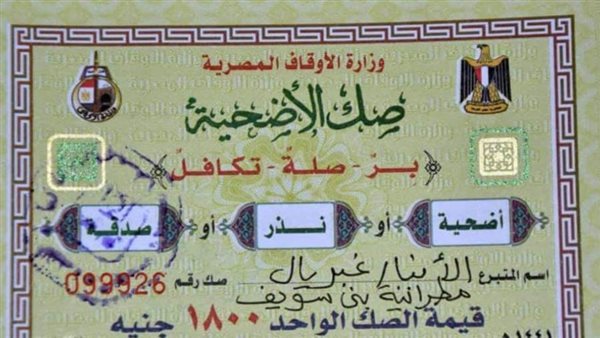 وزارة الأوقاف المصرية
صك الأضحية
بر - صلة - تكافل
أضحية أو نذر أو صدقة
اسم المتبرع الأنبا غبريال صك رقم 099926
مطرانية بنى سويف
قيمة الصك الواحد ١٨٠٠ جنيه